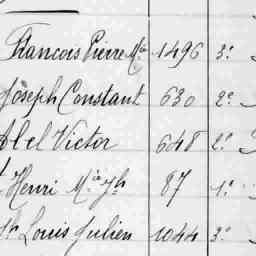 François Pierre Mie 1496 3°
Joseph Constant 630 2°
Abel Victor 648 2°
Henri Mie Jh 87 1°
Jh Louis Julien 1044 3°